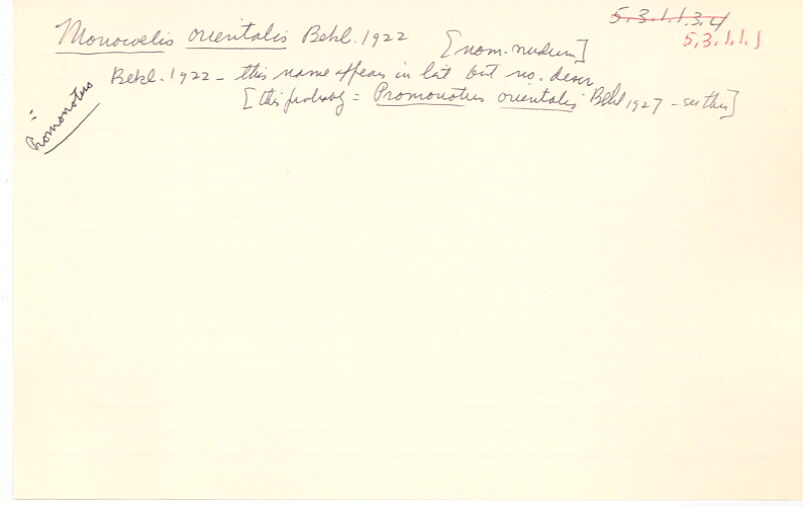 5.3.1.1.3.4
5,3.1.1.1
Monocelis orientalis Bekl. 1922 [nom. nudum]
Bekl. 1922 - this name appears in lit but no. descr
[this probably = Promonotus orientalis Bekl 1927 - see this]
= Promonotus